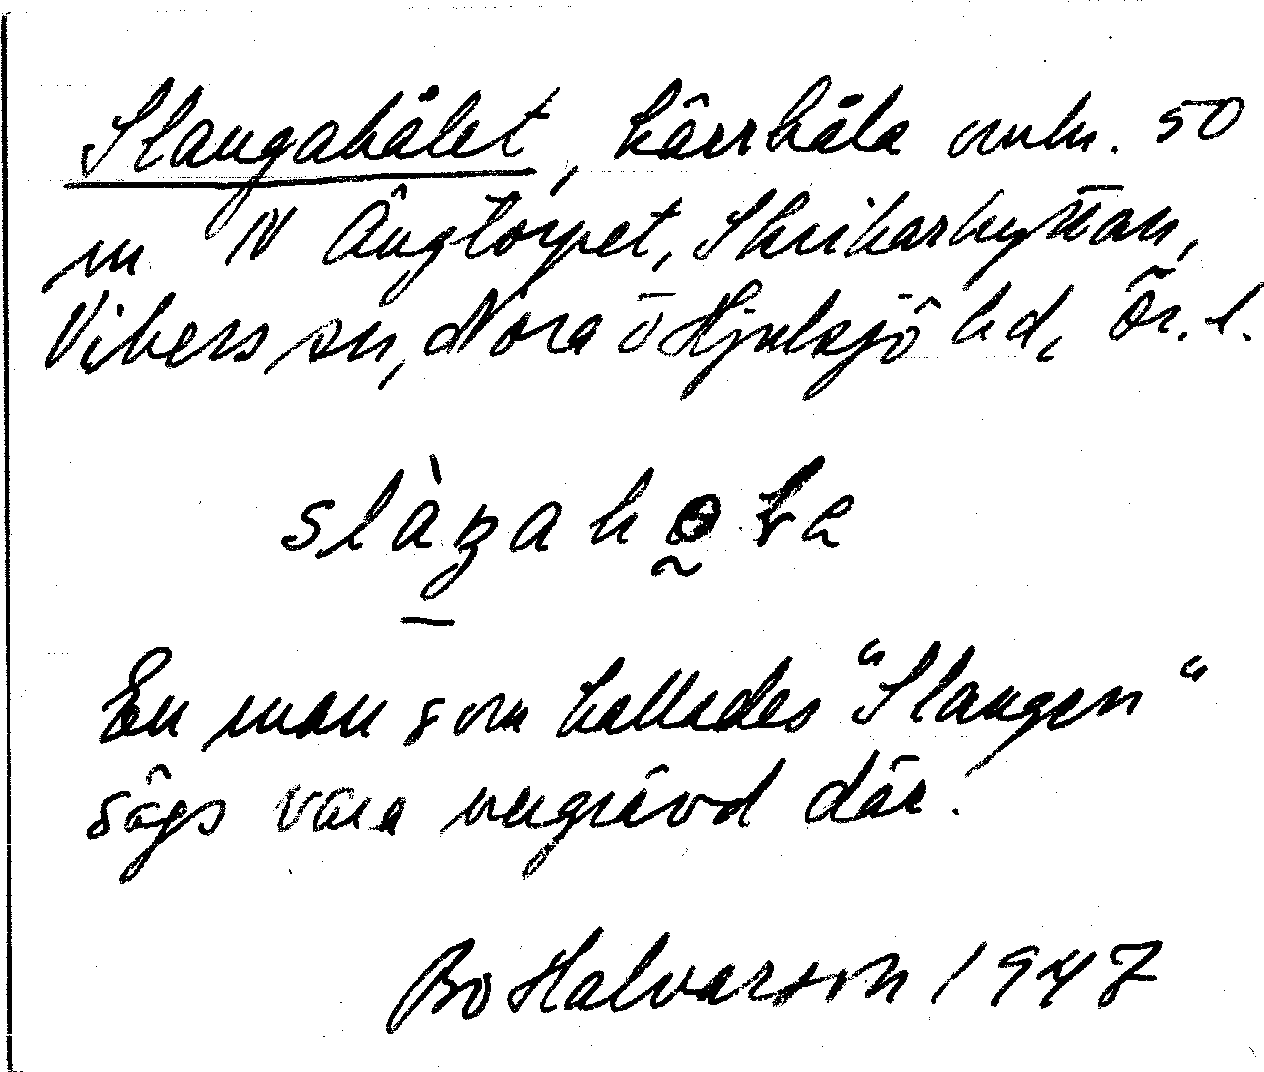 Slangahålet, kärrhåla omkr. 50
m N Ängtorpet, Skrikarhyttan,
Vikers sn, Nora o Hjulsjö hd, Ör. l.
En man som kallades "Slangen"
sägs vara nergrävd där.
Bo Halvarson 1947